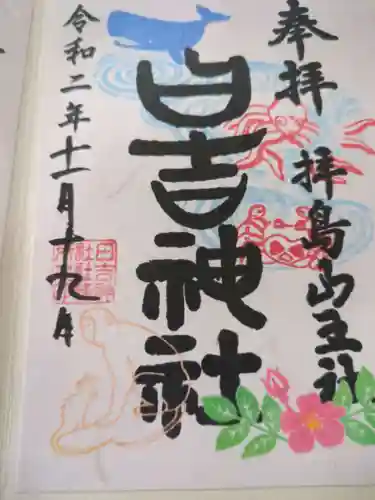 奉拝
拝島山王社
日吉神社
令和二年十一月十九日